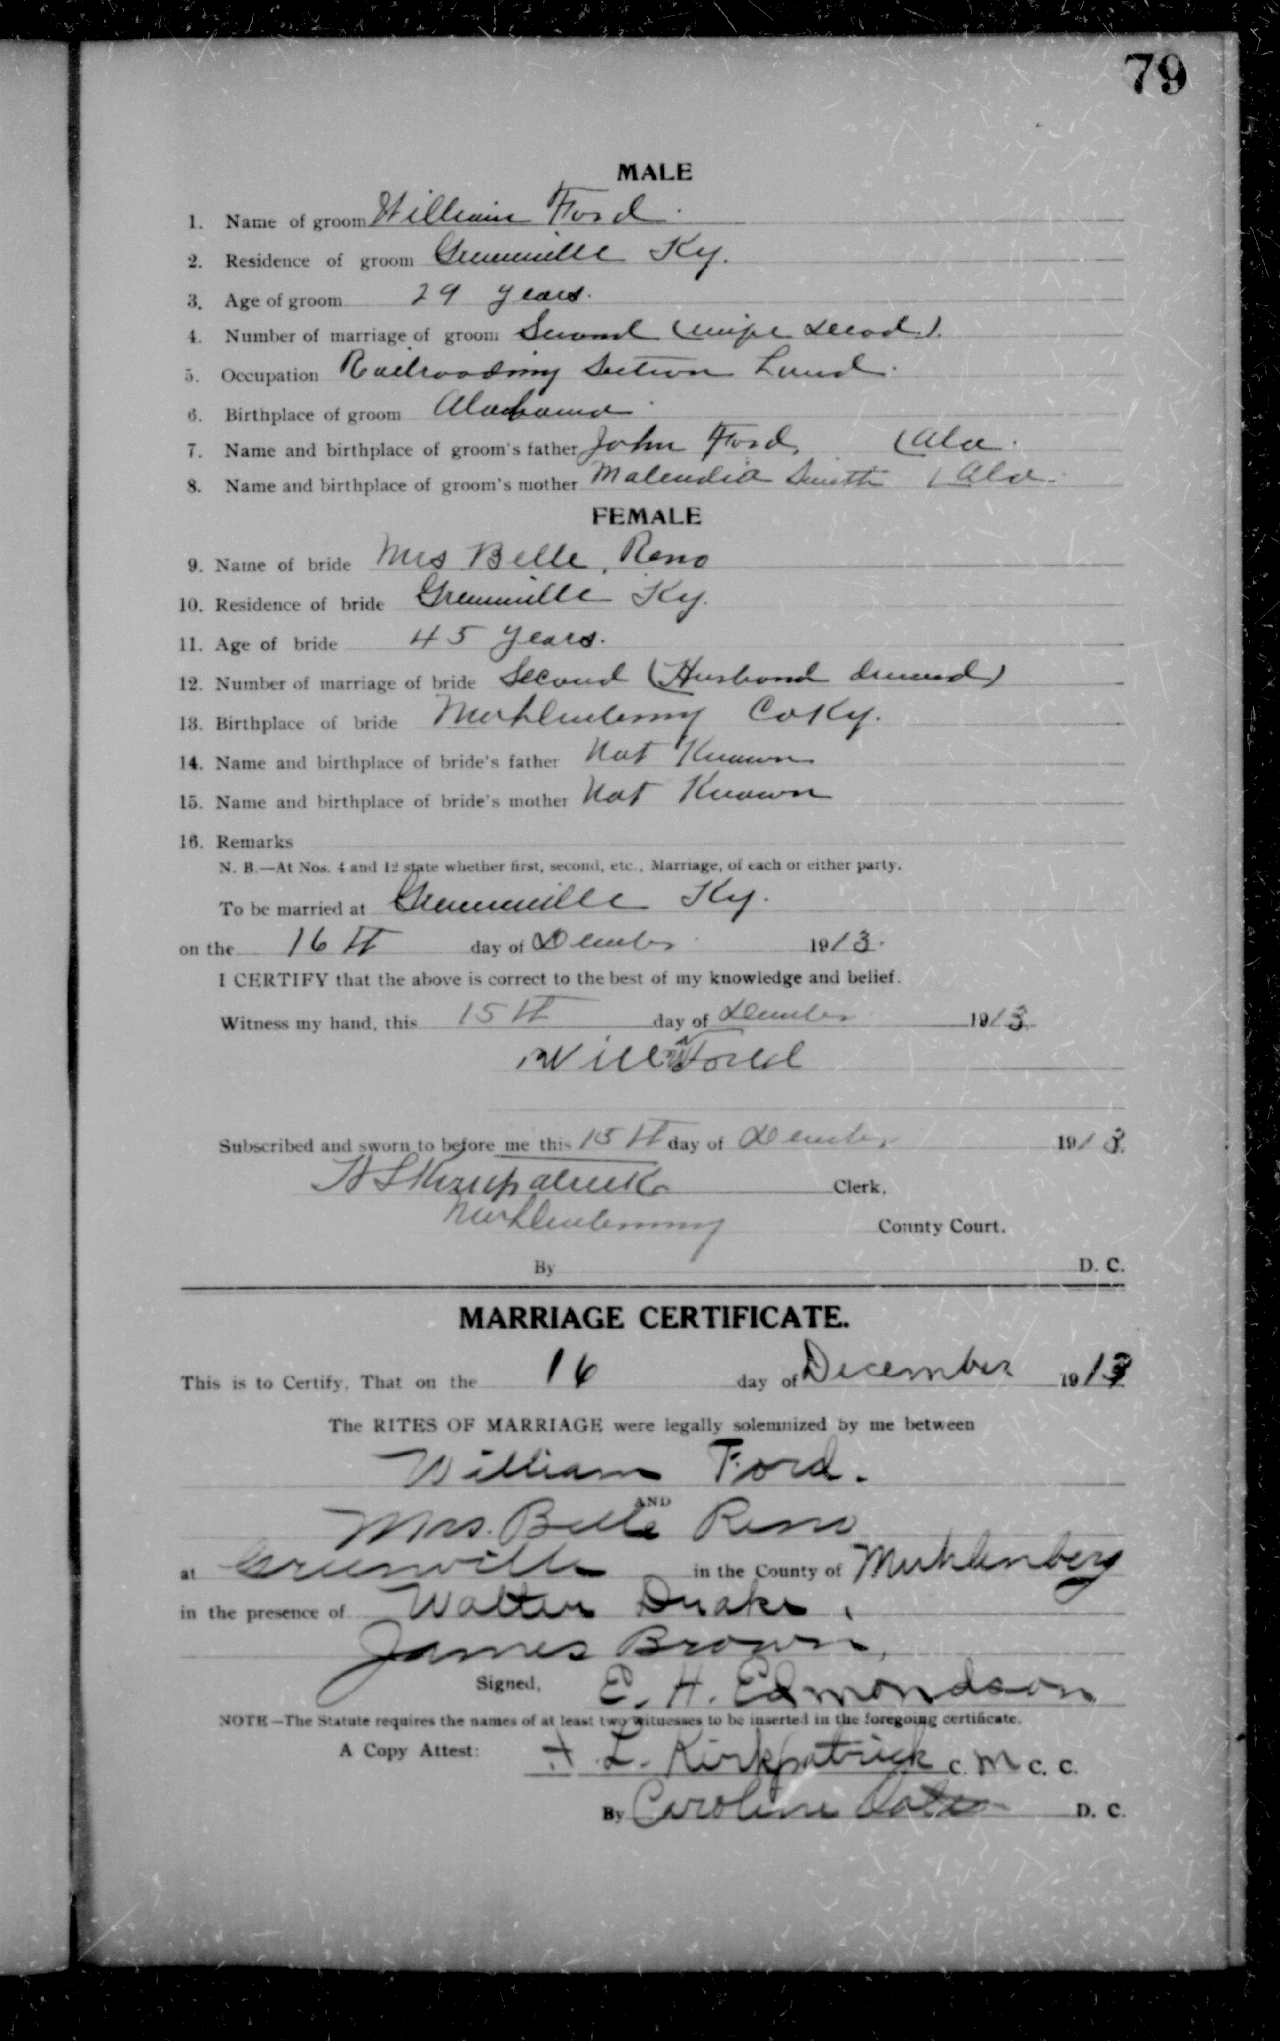 79
MALE
1. Name of groom William Ford.
2. Residence of groom Greenville Ky.
3. Age of groom 29 years.
4. Number of marriage of groom Second (wife dead).
5. Occupation Railroading Section Hand.
6. Birthplace of groom Alabama
7. Name and birthplace of groom's father John Ford, (Ala.
8. Name and birthplace of groom's mother Malendia Smith (Ala.
FEMALE
9. Name of bride Mrs Belle Reno
10. Residence of bride Greenville Ky.
11. Age of bride 45 years.
12. Number of marriage of bride Second (Husband deceased)
13. Birthplace of bride Muhlenberg Co Ky.
14. Name and birthplace of bride's father Not Known
15. Name and birthplace of bride's mother Not Known
16. Remarks
N. B.—At Nos. 4 and 12 state whether first, second, etc., Marriage, of each or either party.
To be married at Greenville Ky.
on the 16th day of December 1913.
I CERTIFY that the above is correct to the best of my knowledge and belief.
Witness my hand, this 15th day of December 1913
Will Ford
Subscribed and sworn to before me this 15th day of December 1913.
Kirkpatrick Clerk,
Muhlenberg County Court.
By D. C.
MARRIAGE CERTIFICATE.
This is to Certify, That on the 16 day of December 1913
The RITES OF MARRIAGE were legally solemnized by me between
William Ford.
AND
Mrs. Belle Reno
at Greenville in the County of Muhlenberg
in the presence of Walter Drake,
James Brown,
Signed, E. H. Edmondson
NOTE—The Statute requires the names of at least two witnesses to be inserted in the foregoing certificate.
A Copy Attest: L. Kirkpatrick C. M C. C.
By Caroline D. C.